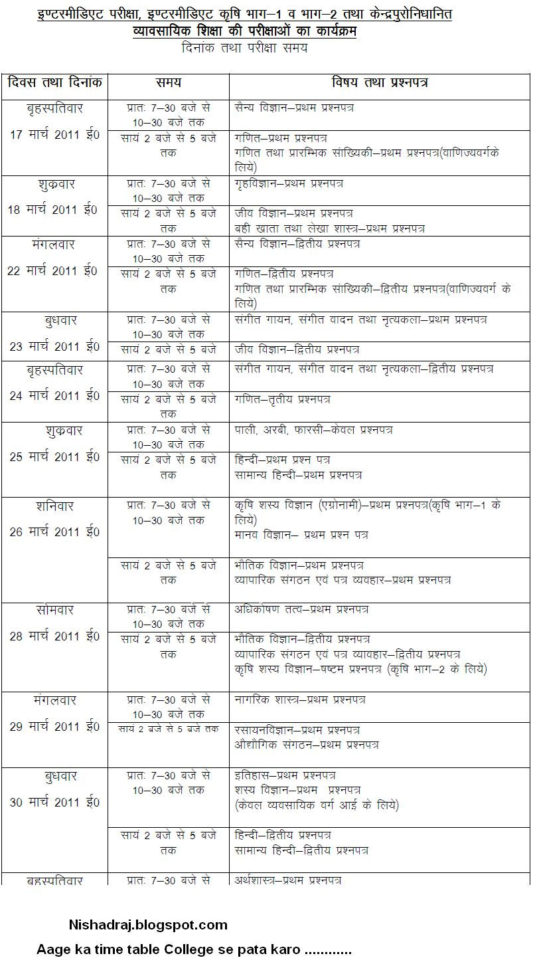 इण्टरमीडिएट परीक्षा, इण्टरमीडिएट कृषि भाग–1 व भाग–2 तथा केन्द्रपुरोनिधानित
व्यावसायिक शिक्षा की परीक्षाओं का कार्यक्रम
दिनांक तथा परीक्षा समय
दिवस तथा दिनांक समय विषय तथा प्रश्नपत्र
बृहस्पतिवार
17 मार्च 2011 ई0
प्रातः 7–30 बजे से
10–30 बजे तक
सैन्य विज्ञान–प्रथम प्रश्नपत्र
सायं 2 बजे से 5 बजे
तक
गणित–प्रथम प्रश्नपत्र
गणित तथा प्रारम्भिक सांख्यिकी–प्रथम प्रश्नपत्र(वाणिज्यवर्गके
लिये)
शुक्रवार
18 मार्च 2011 ई0
प्रातः 7–30 बजे से
10–30 बजे तक
गृहविज्ञान–प्रथम प्रश्नपत्र
सायं 2 बजे से 5 बजे
तक
जीव विज्ञान–प्रथम प्रश्नपत्र
बही खाता तथा लेखा शास्त्र–प्रथम प्रश्नपत्र
मंगलवार
22 मार्च 2011 ई0
प्रातः 7–30 बजे से
10–30 बजे तक
सैन्य विज्ञान–द्वितीय प्रश्नपत्र
सायं 2 बजे से 5 बजे
तक
गणित–द्वितीय प्रश्नपत्र
गणित तथा प्रारम्भिक सांख्यिकी–द्वितीय प्रश्नपत्र(वाणिज्यवर्ग के
लिये)
बुधवार
23 मार्च 2011 ई0
प्रातः 7–30 बजे से
10–30 बजे तक
संगीत गायन, संगीत वादन तथा नृत्यकला–प्रथम प्रश्नपत्र
सायं 2 बजे से 5 बजे
जीव विज्ञान–द्वितीय प्रश्नपत्र
बृहस्पतिवार
24 मार्च 2011 ई0
प्रातः 7–30 बजे से
10–30 बजे तक
संगीत गायन, संगीत वादन तथा नृत्यकला–द्वितीय प्रश्नपत्र
सायं 2 बजे से 5 बजे
तक
गणित–तृतीय प्रश्नपत्र
शुक्रवार
25 मार्च 2011 ई0
प्रातः 7–30 बजे से
10–30 बजे तक
पाली, अरबी, फारसी–केवल प्रश्नपत्र
सायं 2 बजे से 5 बजे
तक
हिन्दी–प्रथम प्रश्न पत्र
सामान्य हिन्दी–प्रथम प्रश्नपत्र
शनिवार
26 मार्च 2011 ई0
प्रातः 7–30 बजे से
10–30 बजे तक
कृषि शस्य विज्ञान (एग्रोनामी)–प्रथम प्रश्नपत्र(कृषि भाग–1 के
लिये)
मानव विज्ञान– प्रथम प्रश्न पत्र
सायं 2 बजे से 5 बजे
तक
भौतिक विज्ञान–प्रथम प्रश्नपत्र
व्यापारिक संगठन एवं पत्र व्यवहार–प्रथम प्रश्नपत्र
सोमवार
28 मार्च 2011 ई0
प्रातः 7–30 बजे से
10–30 बजे तक
अधिकोषण तत्व–प्रथम प्रश्नपत्र
सायं 2 बजे से 5 बजे
तक
भौतिक विज्ञान–द्वितीय प्रश्नपत्र
व्यापारिक संगठन एवं पत्र व्यावहार–द्वितीय प्रश्नपत्र
कृषि शस्य विज्ञान–षष्टम प्रश्नपत्र (कृषि भाग–2 के लिये)
मंगलवार
29 मार्च 2011 ई0
प्रातः 7–30 बजे से
10–30 बजे तक
नागरिक शास्त्र–प्रथम प्रश्नपत्र
सायं 2 बजे से 5 बजे तक
रसायनविज्ञान–प्रथम प्रश्नपत्र
औद्यौगिक संगठन–प्रथम प्रश्नपत्र
बुधवार
30 मार्च 2011 ई0
प्रातः 7–30 बजे से
10–30 बजे तक
इतिहास–प्रथम प्रश्नपत्र
शस्य विज्ञान–प्रथम प्रश्नपत्र
(केवल व्यवसायिक वर्ग आई के लिये)
सायं 2 बजे से 5 बजे
तक
हिन्दी–द्वितीय प्रश्नपत्र
सामान्य हिन्दी–द्वितीय प्रश्नपत्र
बृहस्पतिवार
प्रातः 7–30 बजे से
अर्थशास्त्र–प्रथम प्रश्नपत्र
Nishadraj.blogspot.com
Aage ka time table College se pata karo ............